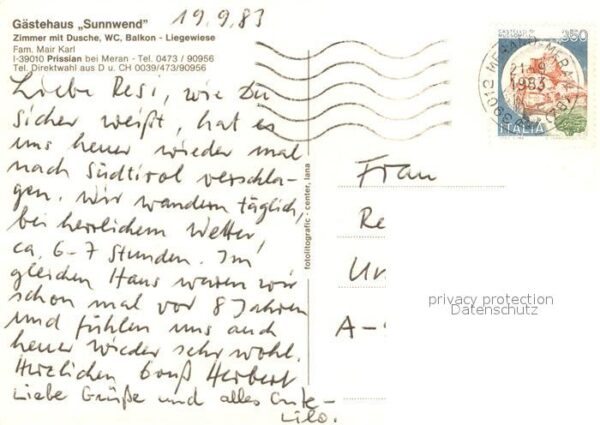 Gästehaus „Sunnwend"
Zimmer mit Dusche, WC, Balkon - Liegewiese
Fam. Mair Karl
I-39010 Prissian bei Meran - Tel. 0473 / 90956
Tel. Direktwahl aus D u. CH 0039/473/90956
19.9.83
Liebe Resi, wie Du
sicher weißt, hat es
uns heuer wieder mal
nach Südtirol verschla-
gen. Wir wandern täglich,
bei herrlichem Wetter,
ca. 6-7 Stunden. Im
gleichen Haus waren wir
schon mal vor 8 Jahren
und fühlen uns auch
heuer wieder sehr wohl.
Herzlichen Gruß Herbert
Liebe Grüße und alles Gute-
Lilo.
fotolitografic - center, lana
350
ITALIA
39012 MERANO-MERAN
21-9
1983
Frau
Re
Ur
A-
privacy protection
Datenschutz